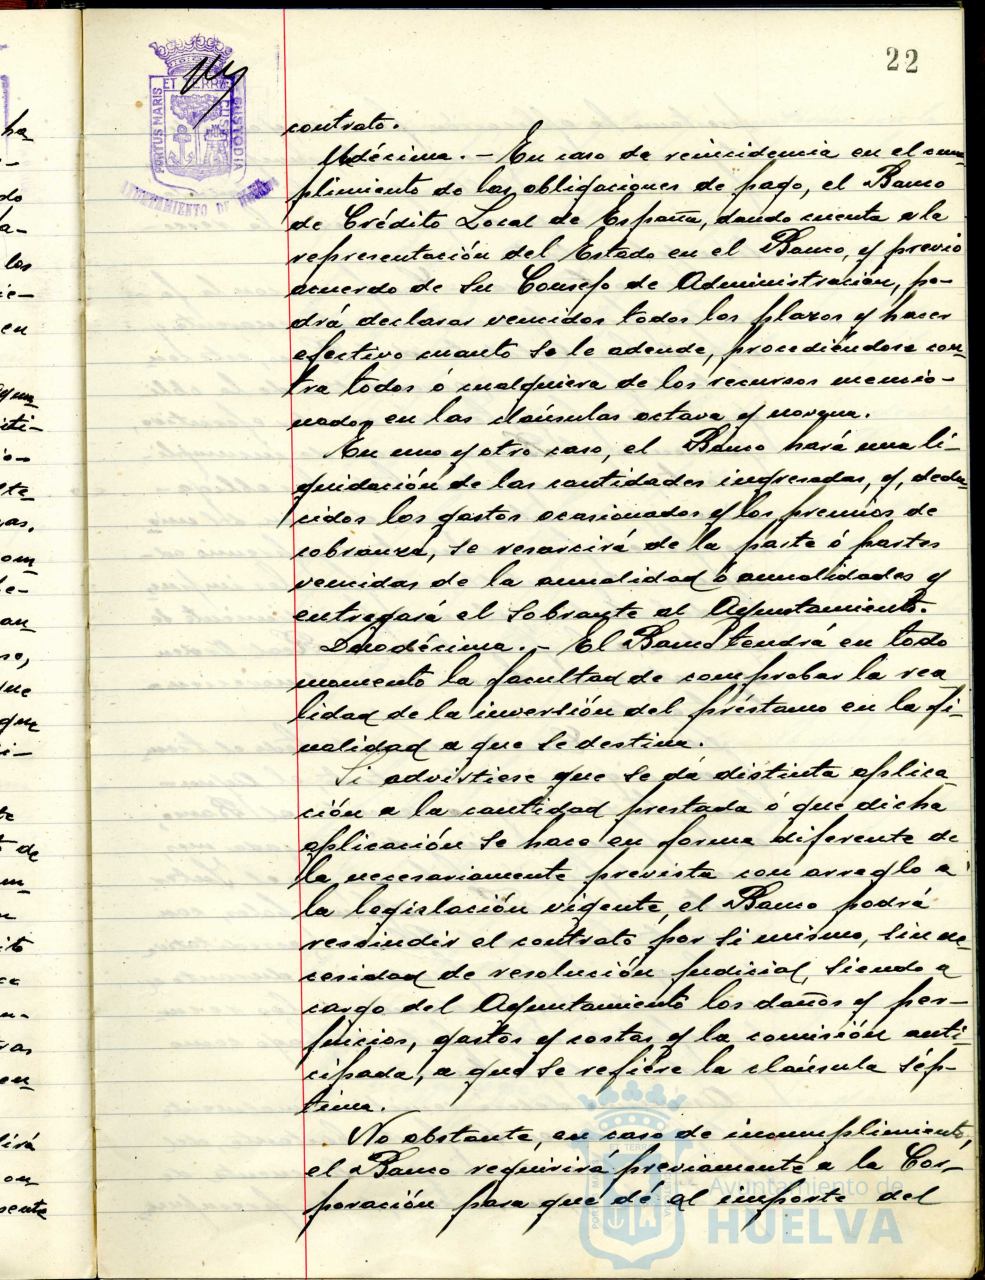 22
PORTUS MARIS
ET TERRÆ
CUSTODIA
AYUNTAMIENTO DE HUELVA
contrato.
Undécima. - En caso de reincidencia en el cum-
plimiento de las obligaciones de pago, el Banco
de Crédito Local de España, dando cuenta a la
representación del Estado en el Banco, y previo
acuerdo de su Consejo de Administración, po-
drá declarar vencidos todos los plazos y hacer
efectivo cuanto se le adeude, procediéndose con-
tra todos ó cualquiera de los recursos mencio-
nados en las claúsulas octava y novena.
En uno y otro caso, el Banco hará una li-
quidación de las cantidades ingresadas, y, dedu-
cidos los gastos ocasionados y los premios de
cobranza, se resarcirá de la parte ó partes
vencidas de la anualidad ó anualidades y
entregará el sobrante al Ayuntamiento.
Duodécima. - El Banco tendrá en todo
momento la facultad de comprobar la rea
lidad de la inversión del préstamo en la fi-
nalidad a que se destina.
Si advirtiese que se dá distinta aplica
ción a la cantidad prestada ó que dicha
aplicación se hace en forma diferente de
la necesariamente prevista con arreglo a
la legislación vigente, el Banco podrá
rescindir el contrato por si mismo, sin ne-
cesidad de resolución judicial, siendo a
cargo del Ayuntamiento los daños y per-
juicios, gastos y costas y la comisión anti-
cipada, a que se refiere la claúsula sép-
tima.
No obstante, en caso de incumplimiento,
el Banco requirirá previamente a la Cor-
poración para que dé al importe del
Ayuntamiento de
HUELVA